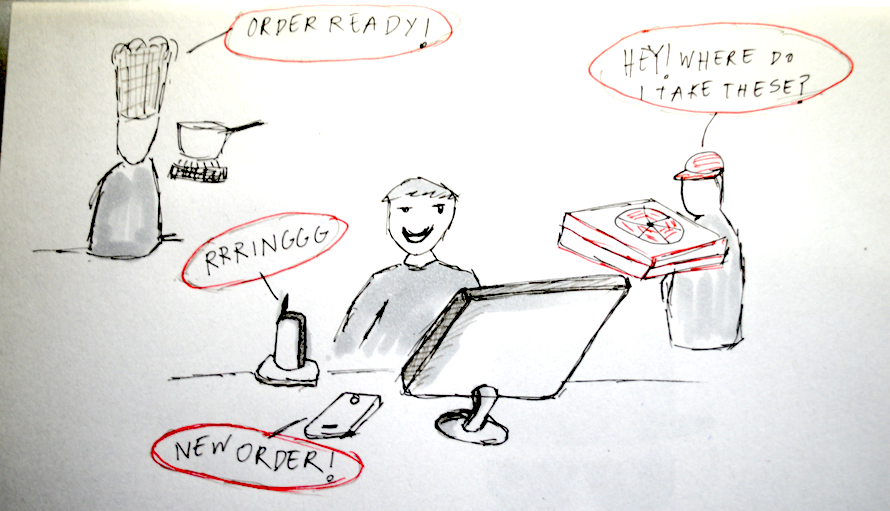 ORDER READY!
HEY! WHERE DO
I TAKE THESE?
RRRINGGG
NEW ORDER!